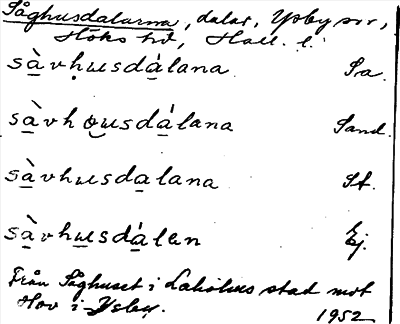 Såghusdalarna, dalar, Ysby sn,
Höks hd, Hall. l.
sàvhusdálana Sa.
sàvhousdálana Sand.
sàvhusdalana St.
sàvhusdálen Ej.
Från Såghuset i Laholms stad mot
Hov i Ysby. 1952